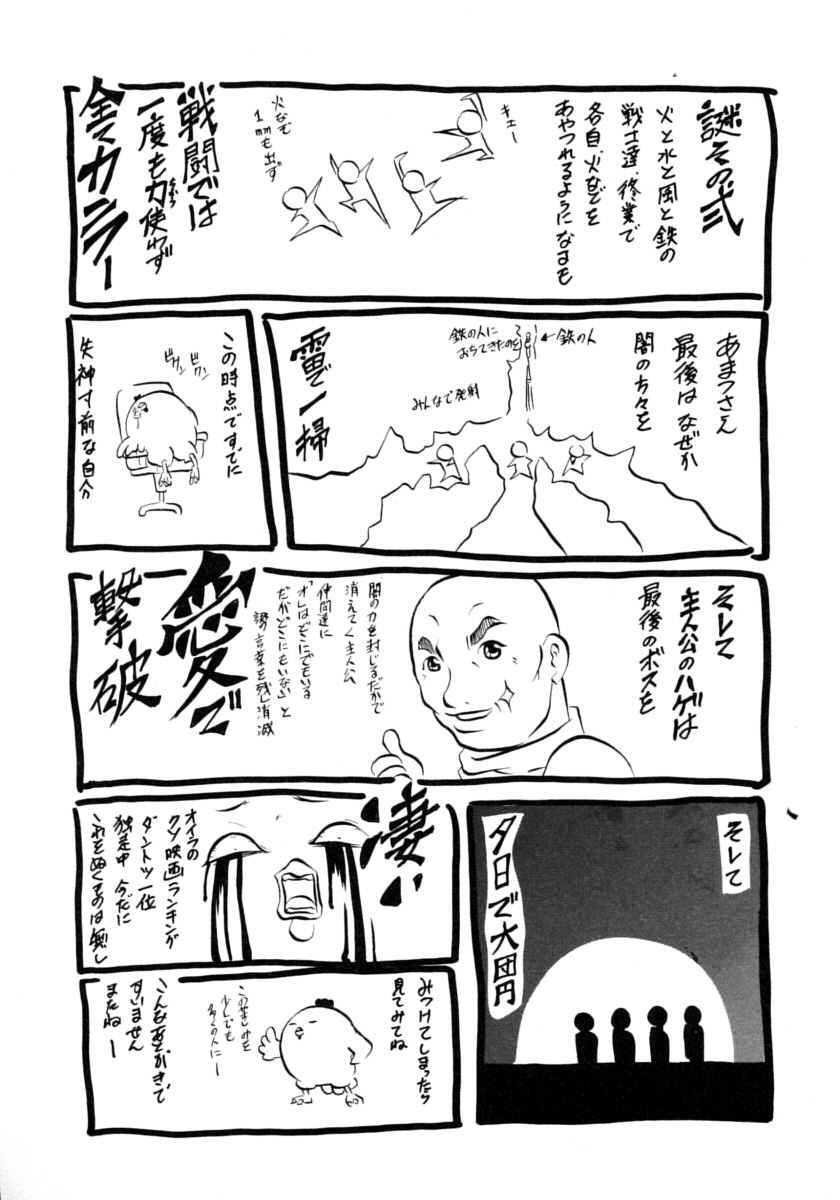 謎その弐
火と水と風と鉄の
戦士達、修業で
各自、火などを
あやつれるようになるも
キエー
火など
1mmも出ず
戦闘では
一度も力使わず
全てカラー
あまつさえ
最後はなぜか
闇の方々を
←鉄の人
鉄の人に
おちてきたのを
みんなで発射
雷で一掃
この時点ですでに
ビクン
ビクン
失神寸前な自分
そして
主人公のハゲは
最後のボスを
闇の力を封じるだかで
消えてく主人公
仲間達に
「オレはどこにでもいる
だがどこにもいない」と
謎の言葉を残し消滅
愛で
撃破
そして
夕日で大団円
凄い
オイラの
クソ映画ランキング
ダントツ一位
独走中 今だに
これをぬくものは無し
みつけてしまったら
見てみてね
この苦しみを
少しでも
多くの人にー
こんなあとがきで
すいません
またねー